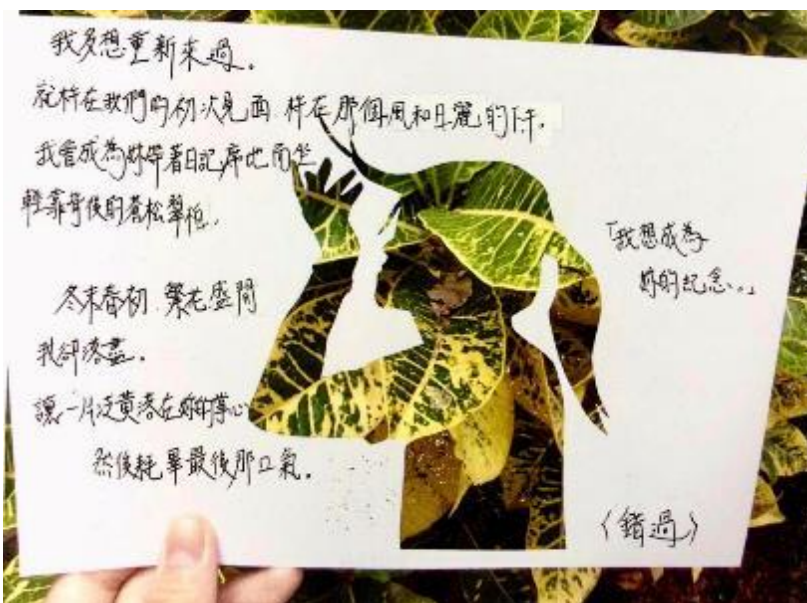 我多想重新來過。
就停在我們的初次見面 停在那個風和日麗的下午。
我會成為妳帶著日記席地而坐
輕靠背後的蒼松翠柏。
冬末春初.繁花盛開
我卻落盡。
讓一片泛黃落在妳的掌心
然後耗畢最後那口氣。
「我想成為
妳的紀念。」
〈錯過〉